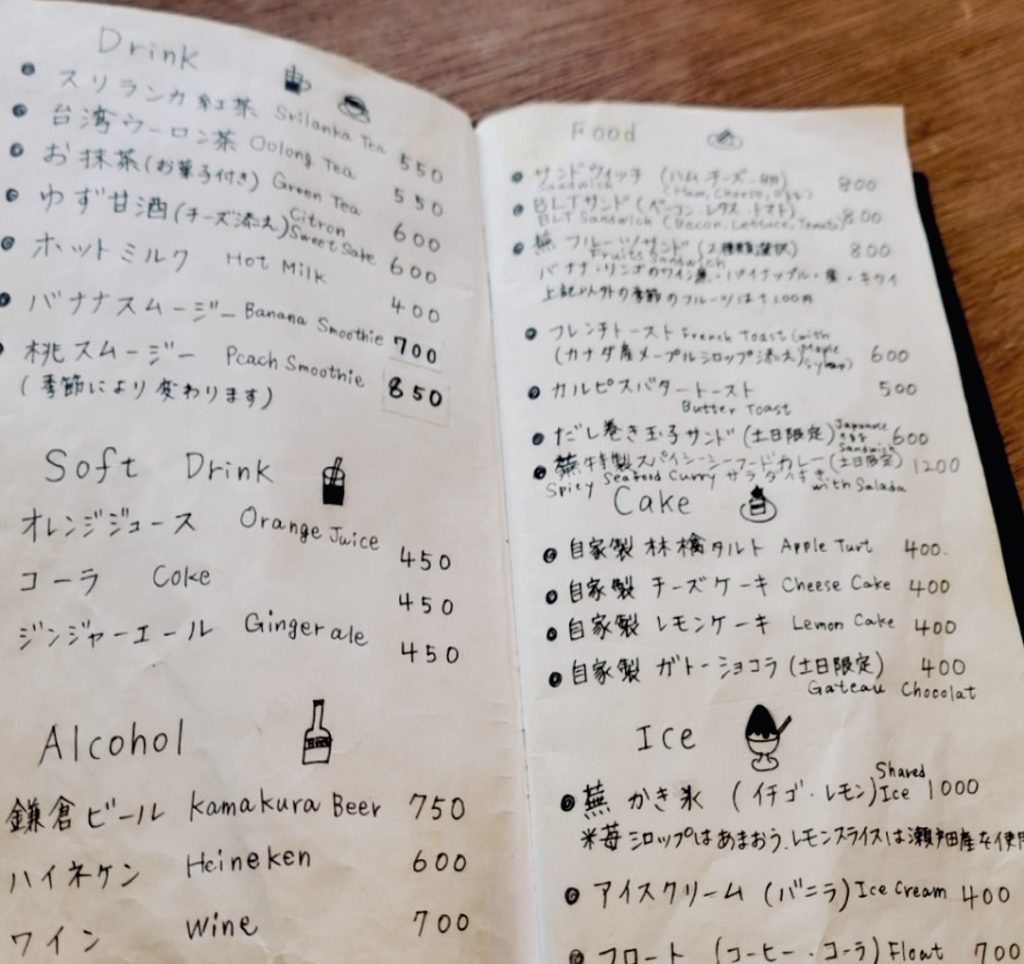 Drink
スリランカ紅茶 Srilanka Tea 550
台湾ウーロン茶 Oolong Tea 550
お抹茶(お菓子付き) Green Tea 600
ゆず甘酒(チーズ添え) Citron Sweet Sake 600
ホットミルク Hot Milk 400
バナナスムージー Banana Smoothie 700
桃スムージー Peach Smoothie 850
(季節により変わります)
Soft Drink
オレンジジュース Orange Juice 450
コーラ Coke 450
ジンジャーエール Ginger ale 450
Alcohol
鎌倉ビール Kamakura Beer 750
ハイネケン Heineken 600
ワイン Wine 700
Food
サンドウィッチ (ハム・チーズ・卵) 800
Sandwich (Ham, Cheese, Egg)
BLTサンド(ベーコン・レタス・トマト) 800
BLT Sandwich (Bacon, Lettuce, Tomato)
フルーツサンド(2種類選択) 800
Fruits Sandwich
バナナ・リンゴのワイン煮・パイナップル・・キウイ
上記以外の季節のフルーツは+100円
フレンチトースト French Toast (with
(カナダ産メープルシロップ添え) Maple 600
カルピスバタートースト 500
Butter Toast
だし巻き玉子サンド(土日限定) Japanese egg Sandwich 600
特製スパイシーシーフードカレー(土日限定) 1200
Spicy Seafood Curry サラダ付き with Salada
Cake
自家製 林檎タルト Apple Turt 400.
自家製 チーズケーキ Cheese Cake 400
自家製 レモンケーキ Lemon Cake 400
自家製 ガトーショコラ(土日限定) 400
Gateau Chocolat
Ice
かき氷 (イチゴ・レモン) Shared Ice 1000
※苺シロップはあまおう、レモンスライスは瀬戸田産を使用
アイスクリーム (バニラ) Ice Cream 400
フロート (コーヒー・コーラ) Float 700